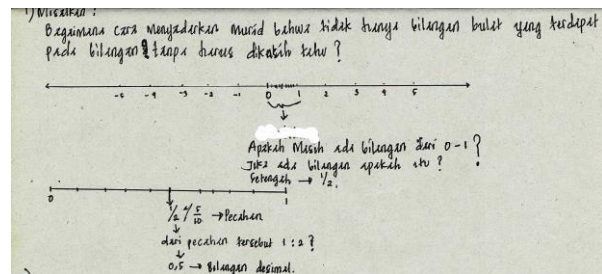 1) Misalkan :
Bagaimana cara menyadarkan murid bahwa tidak hanya bilangan bulat yang terdapat
pada bilangan tanpa harus dikasih tahu ?
-5 -4 -3 -2 -1 0 1 2 3 4 5
Apakah Masih ada bilangan dari 0-1 ?
Jika ada bilangan apakah itu ?
Setengah → 1/2.
0 1
1/2 / 5/10 → Pecahan
dari pecahan tersebut 1 : 2 ?
0,5 → Bilangan desimal.